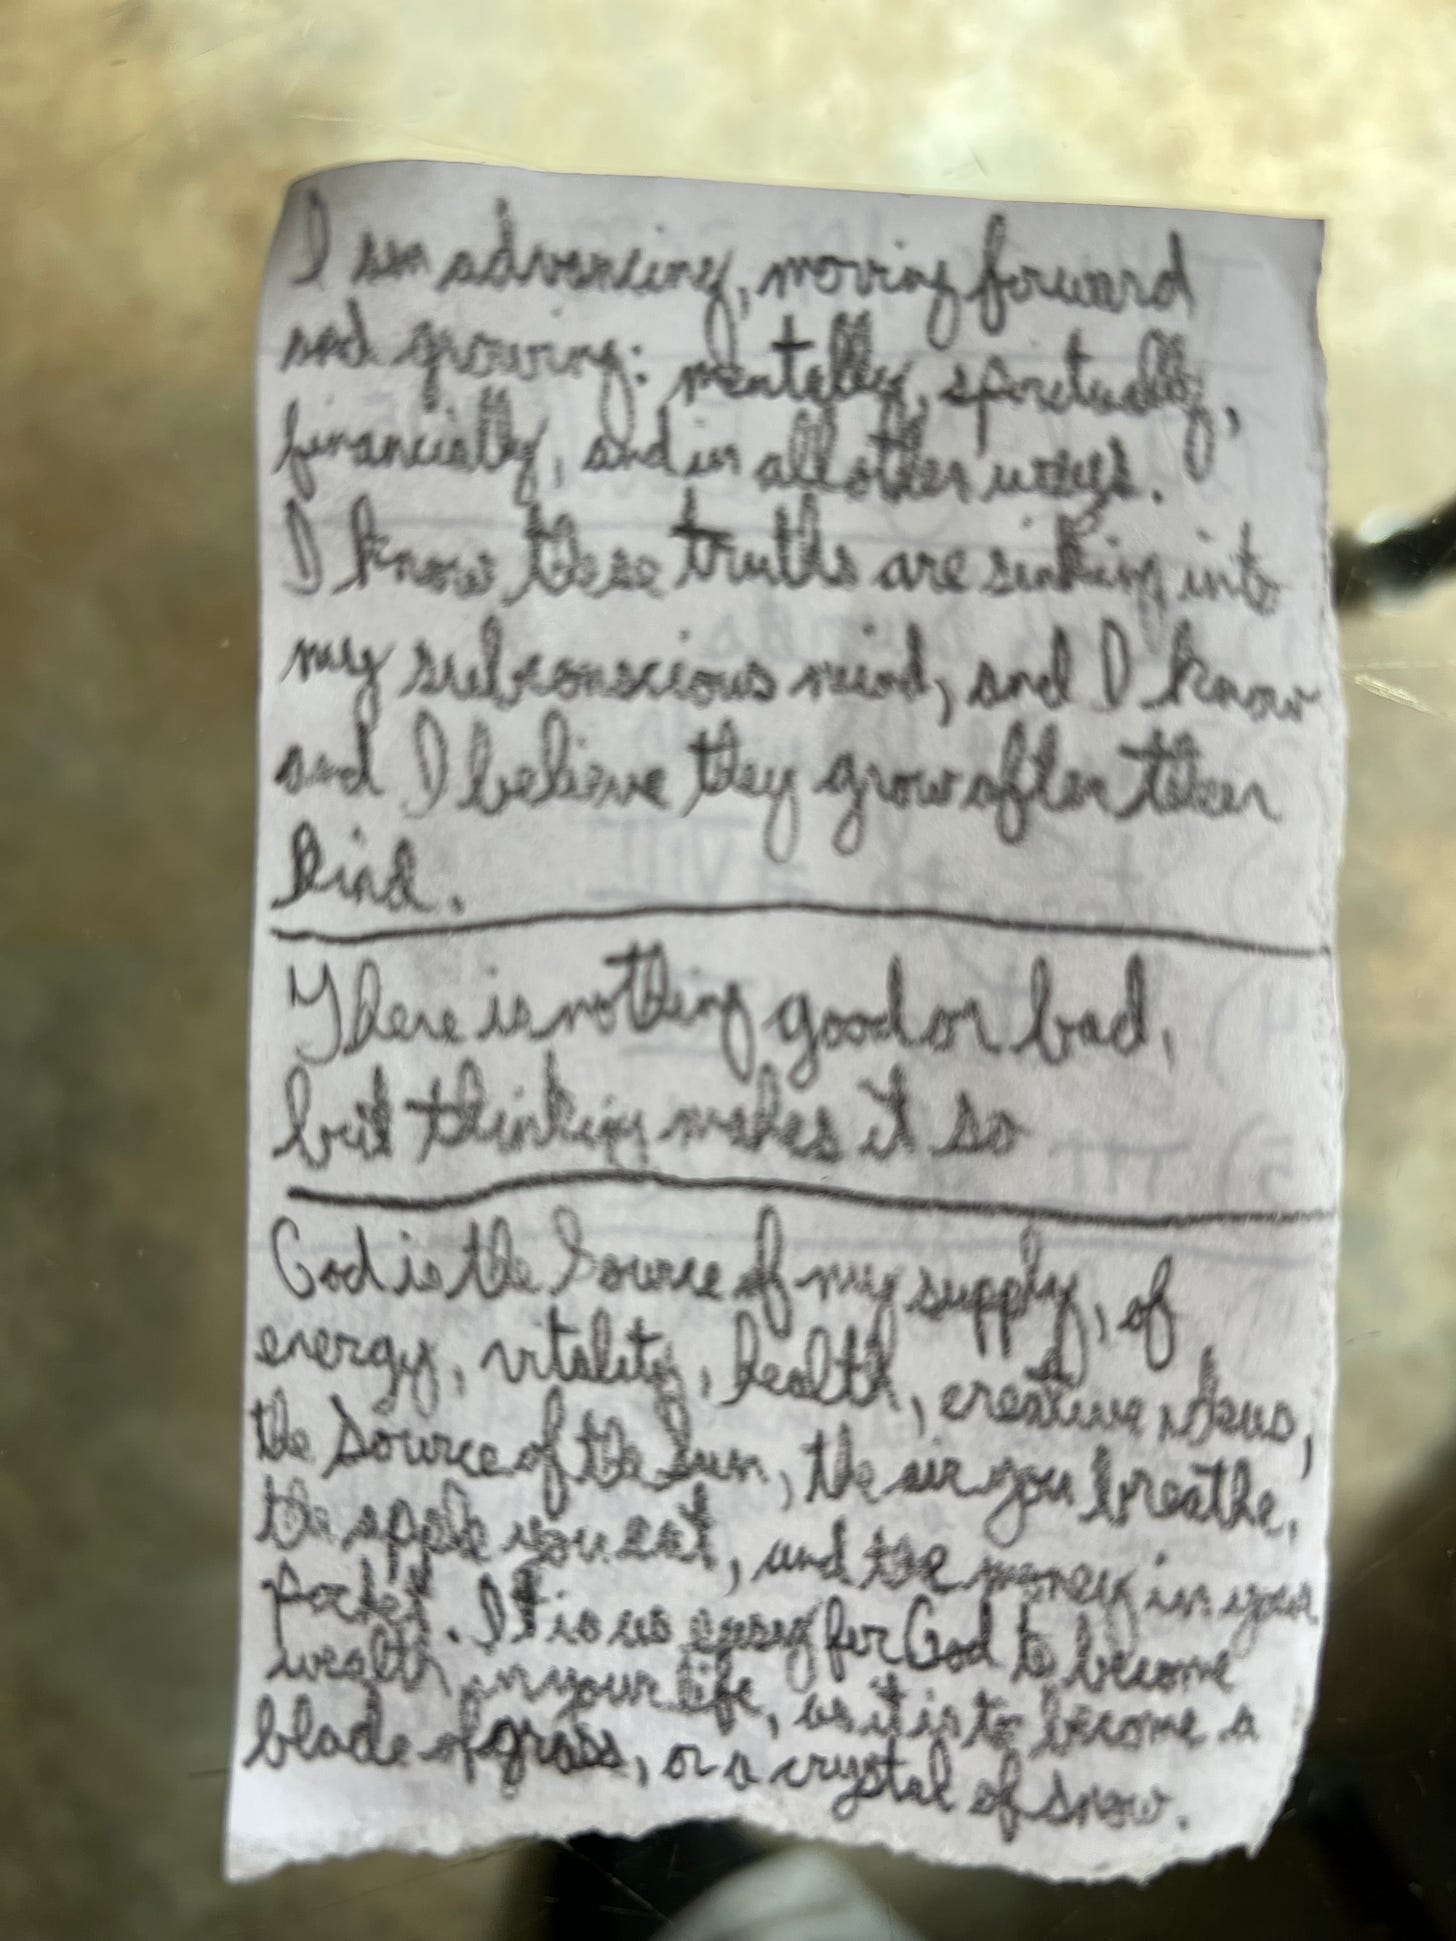 I am advancing, moving forward
and growing: mentally, spiritually,
financially, and in all other ways.
I know these truths are sinking into
my subconscious mind, and I know
and I believe they grow after their
kind.
There is nothing good or bad,
but thinking makes it so
God is the Source of my supply, of
energy, vitality, health, creative ideas,
the Source of the Sun, the air you breathe,
the apple you eat, and the money in your
pocket. It is as easy for God to become
wealth in your life, as it is to become a
blade of grass, or a crystal of snow.